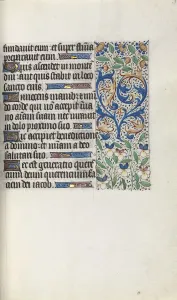 fundavit eum: et super flumina
preparavit eum.
Quis ascendet in monte
dni: aut quis stabit in loco
sancto eius.
Innocens manibus et mun
do corde qui non accepit in va
no animam suam nec iuravit
in dolo proximo suo.
Hic accipiet benedictione
a domino: et miam a deo
salutari suo.
Hec est generatio queren
cium deum querencium fa
ciem dei iacob.